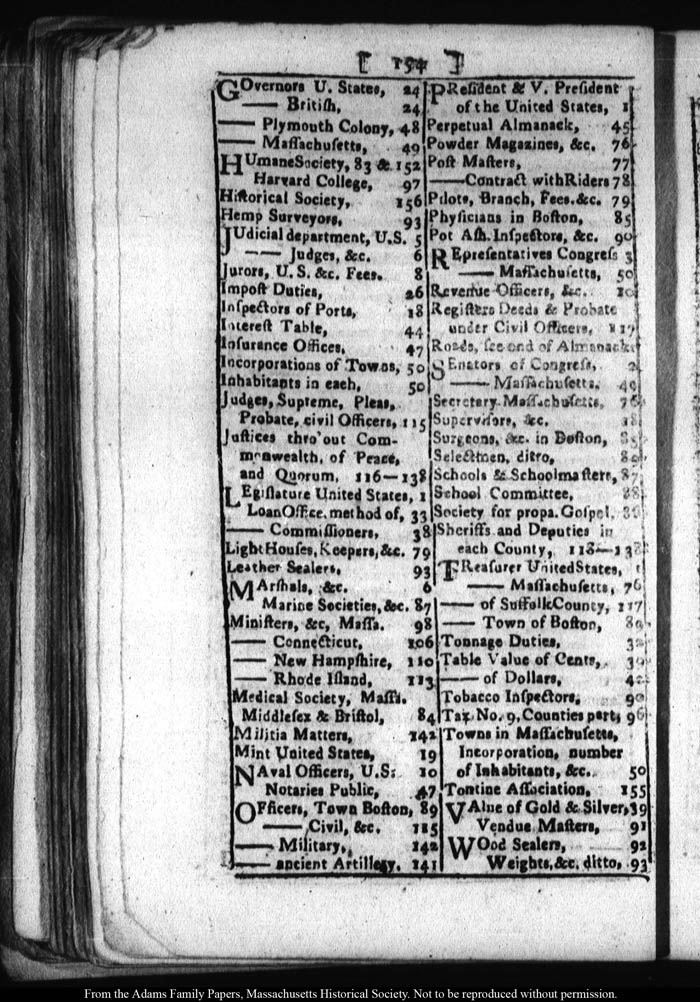 [ 154 ]
GOvernors U. States, 24
—— Britiſh, 24
—— Plymouth Colony, 48
—— Maſſachuſetts, 49
HUmane Society, 83 & 152
Harvard College, 97
Hiſtorical Society, 156
Hemp Surveyors, 93
JUdicial department, U.S. 5
—— Judges, &c. 6
Jurors, U. S. &c. Fees. 8
Impoſt Duties, 26
Inſpectors of Ports, 18
Intereſt Table, 44
Inſurance Offices, 47
Incorporations of Towns, 50
Inhabitants in each, 50
Judges, Supreme, Pleas,
Probate, civil Officers, 115
Juſtices thro'out Com-
monwealth, of Peace,
and Quorum, 116—138
LEgiſlature United States, 1
Loan Office, method of, 33
—— Commiſſioners, 38
Light Houſes, Keepers, &c. 79
Leather Sealers, 93
MArſhals, &c. 6
Marine Societies, &c. 87
Miniſters, &c, Maſſa. 98
—— Connecticut, 106
—— New Hampſhire, 110
—— Rhode Iſland, 113
Medical Society, Maſſa.
Middleſex & Briſtol, 84
Militia Matters, 142
Mint United States, 19
NAval Officers, U.S. 10
Notaries Public, 47
OFficers, Town Boſton, 89
—— Civil, &c. 115
—— Military, 142
—— ancient Artillery. 141
PReſident & V. Preſident
of the United States, 1
Perpetual Almanack, 45
Powder Magazines, &c. 76
Poſt Maſters, 77
—— Contract with Riders 78
Pilots, Branch, Fees. &c. 79
Phyſicians in Boſton, 85
Pot Aſh. Inſpectors, &c. 90
REpreſentatives Congreſs 3
—— Maſſachuſetts, 50
Revenue Officers, &c. 10
Regiſters Deeds & Probate
under Civil Officers, 117
Roads, ſee end of Almanack.
SEnators of Congreſs, 2
—— Maſſachuſetts. 49
Secretary Maſſachuſetts, 76
Superviſors, &c. 18
Surgeons, &c. in Boſton, 85
Selectmen, ditto,
Schools & Schoolmaſters, 87
School Committee, 88
Society for propa. Goſpel.
Sheriffs and Deputies in
each County, 118—138
TReaſurer United States, 1
—— Maſſachuſetts, 76
—— of Suffolk County, 117
—— Town of Boſton, 89
Tonnage Duties, 32
Table Value of Cents, 39
—— of Dollars, 42
Tobacco Inſpectors, 90
Tax No. 9, Counties part, 96
Towns in Maſſachuſetts,
Incorporation, number
of Inhabitants, &c. 50
Tontine Aſſociation, 155
VAlue of Gold & Silver, 39
Vendue Maſters, 91
WOod Sealers, 92
Weights, &c. ditto, 93
From the Adams Family Papers, Massachusetts Historical Society. Not to be reproduced without permission.